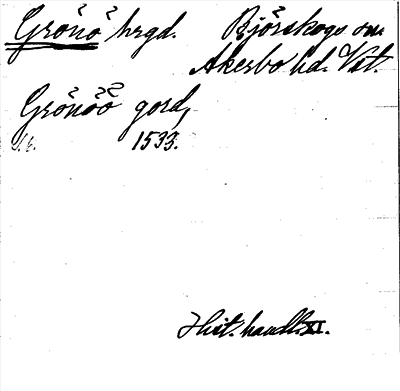 Grönö hrgd. Björskogs sn
Åkerbo hd. Vstl.
Grönöö gord,
1533.
Hist. handl. XI.